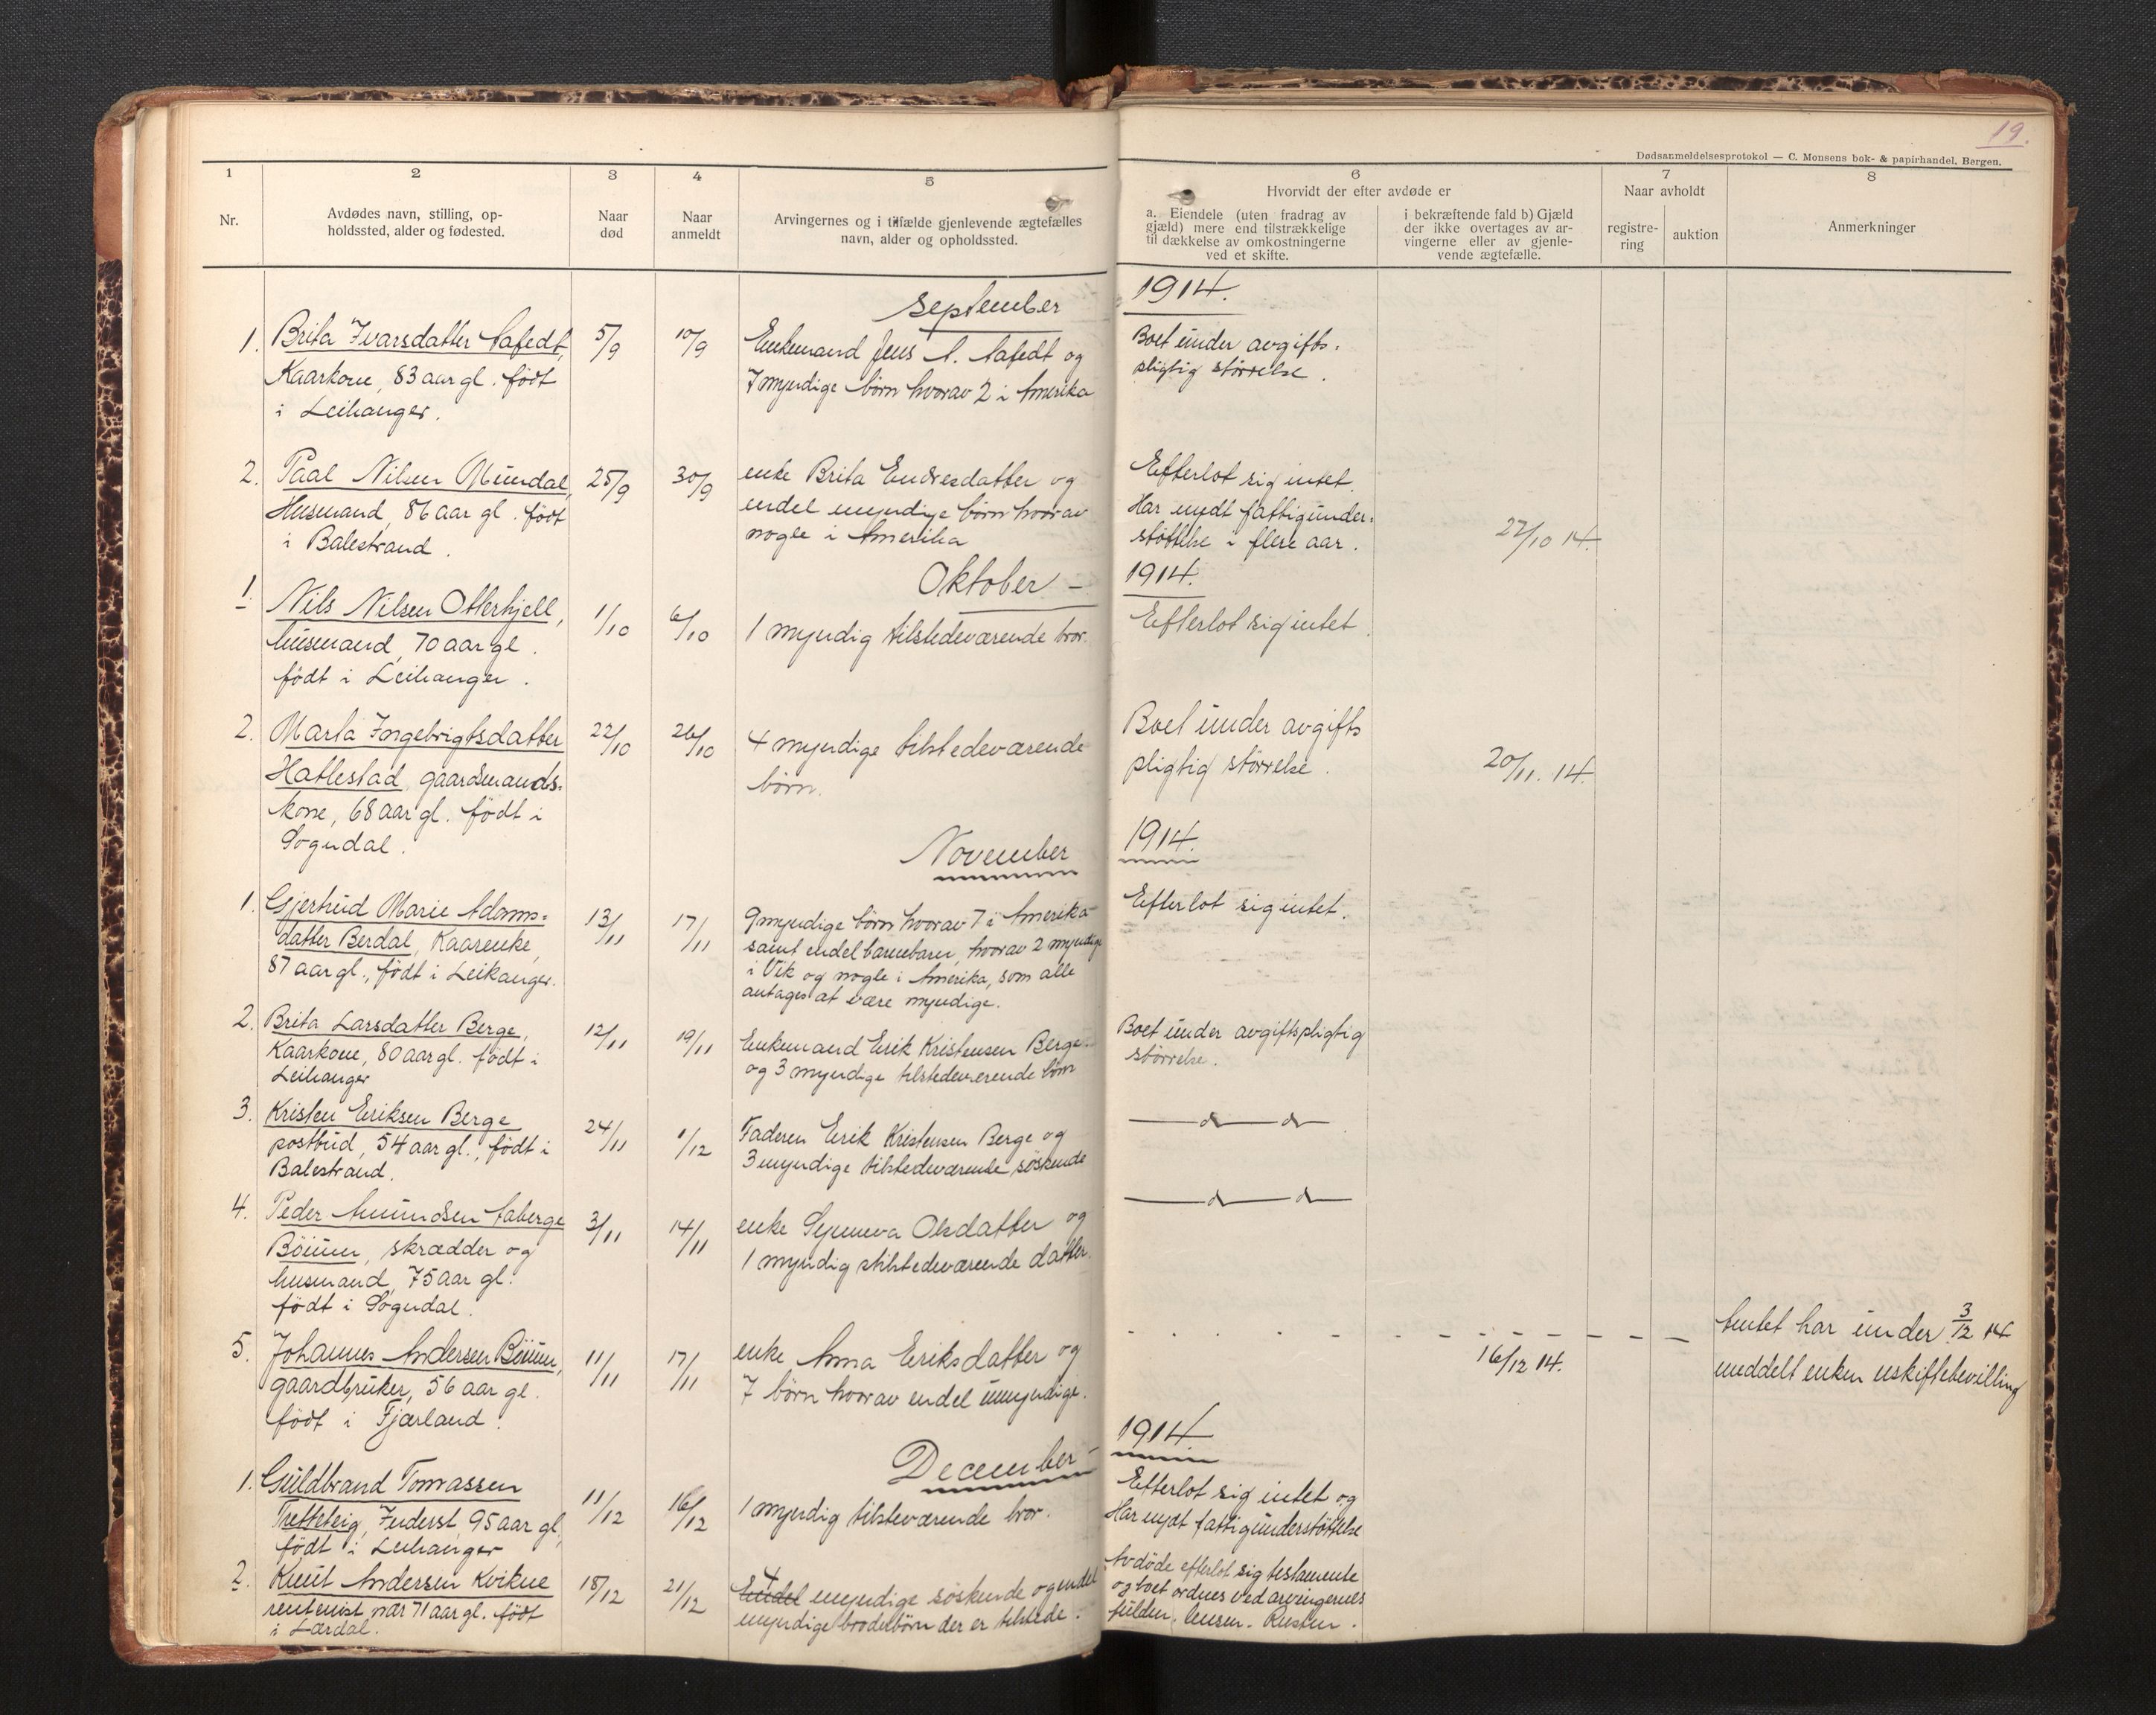 19.
Dødsanmeldelsesprotokol — C. Monsens bok- & papirhandel, Bergen.
1
2
3
4
5
6
7
8
Nr.
Avdødes navn, stilling, op-
holdssted, alder og fødested.
Naar
død
Naar
anmeldt
Arvingernes og i tilfælde gjenlevende ægtefælles
navn, alder og opholdssted.
Hvorvidt der efter avdøde er
a. Eiendele (uten fradrag av
gjæld) mere end tilstrækkelige
til dækkelse av omkostningerne
ved et skifte.
i bekræftende fald b) Gjæld
der ikke overtages av ar-
vingerne eller av gjenle-
vende ægtefælle.
Naar avholdt
registre-
ring
auktion
Anmerkninger
September 1914.
1. Brita Ivarsdatter Aafedt,
Kaarkone, 83 aar gl. født
i Leikanger.
5/9
10/9
Enkemand Jens A. Aafedt og
7 myndige børn hvorav 2 i Amerika
Boet under avgifts-
pligtig størrelse.
2. Paal Nilsen Mundal,
Husmand, 86 aar gl. født
i Balestrand.
25/9
30/9
enke Brita Endresdatter og
endel myndige børn hvorav
nogle i Amerika
Efterlot sig intet.
Har nydt fattigunder-
støttelse i flere aar.
22/10 14.
Oktober – 1914.
1. Nils Nilsen Otterhjell,
husmand, 70 aar gl.
født i Leikanger.
1/10
6/10
1 myndig tilstedeværende bror.
Efterlot sig intet
2. Marta Ingebrigtsdatter
Hatlestad, gaardmands-
kone, 68 aar gl. født i
Sogndal.
22/10
26/10
4 myndige tilstedeværende
børn.
Boet under avgifts
pligtig størrelse.
20/11. 14.
November 1914.
1. Gjertrud Marie Adams-
datter Berdal, Kaarenke,
87 aar gl., født i Leikanger.
13/11
17/11
9 myndige børn hvorav 7 i Amerika
samt endel barnebarn, hvorav 2 myndige
i Vik og nogle i Amerika, som alle
antages at være myndige.
Efterlot sig intet.
2. Brita Larsdatter Berge,
Kaarkone, 80 aar gl. født i
Leikanger
12/11
19/11
Enkemand Erik Kristensen Berge
og 3 myndige tilstedeværende børn
Boet under avgiftspligtig
størrelse.
3. Kristen Eriksen Berge
postbud, 54 aar gl., født i
Balestrand.
24/11
1/12
Faderen Erik Kristensen Berge og
3 myndige tilstedeværende søskende
— d — d —
4. Peder Amundsen Aaberge
Böium, skrædder og
husmand, 75 aar gl.
født i Sogndal.
3/11
14/11
enke Synneva Olsdatter og
1 myndig tilstedeværende datter.
— d — d —
5. Johannes Andersen Böium,
gaardbruker, 56 aar gl.
født i Fjærland.
11/11
17/11
enke Anna Eriksdatter og
7 børn hvorav endel umyndige.
16/12 14.
Amtet har under 3/12 14
meddelt enken uskiftebevilling
December 1914.
1. Guldbrand Tomassen
Tretteteig, Inderst, 95 aar gl,
født i Leikanger
11/12
16/12
1 myndig tilsteværende bror.
Efterlot sig intet og
Har nydt fattigunderstøttelse
2. Knut Andersen Kvikne
rentenist, nær 71 aar gl. født
i Lærdal.
18/12
21/12
Endel 4 myndige søskende og endel
myndige broderbörn der er tilstede.
Avdøde efterlot sig testamente
og boet ordnes ved arvingernes
fuldm. Rusten.